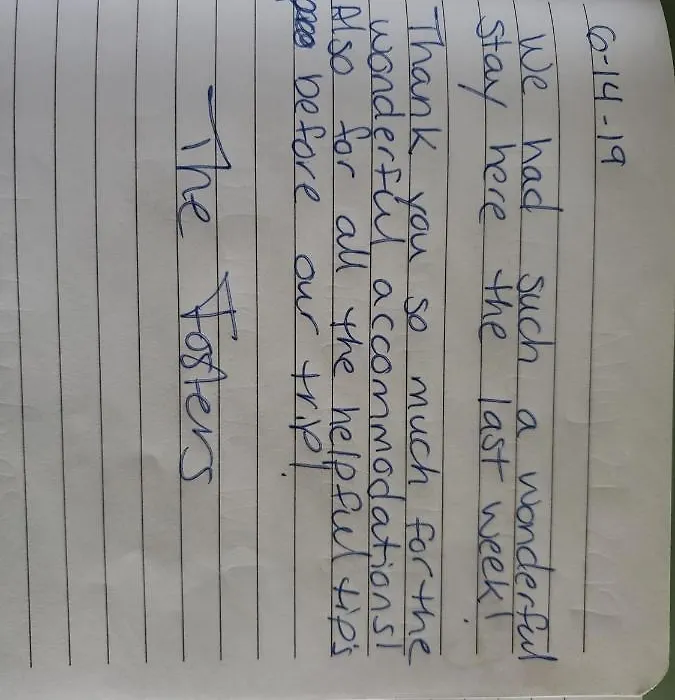 6-14-19
We had such a wonderful
stay here the last week!
Thank you so much for the
wonderful accommodations!
Also for all the helpful tip's
before our trip!
The Fosters